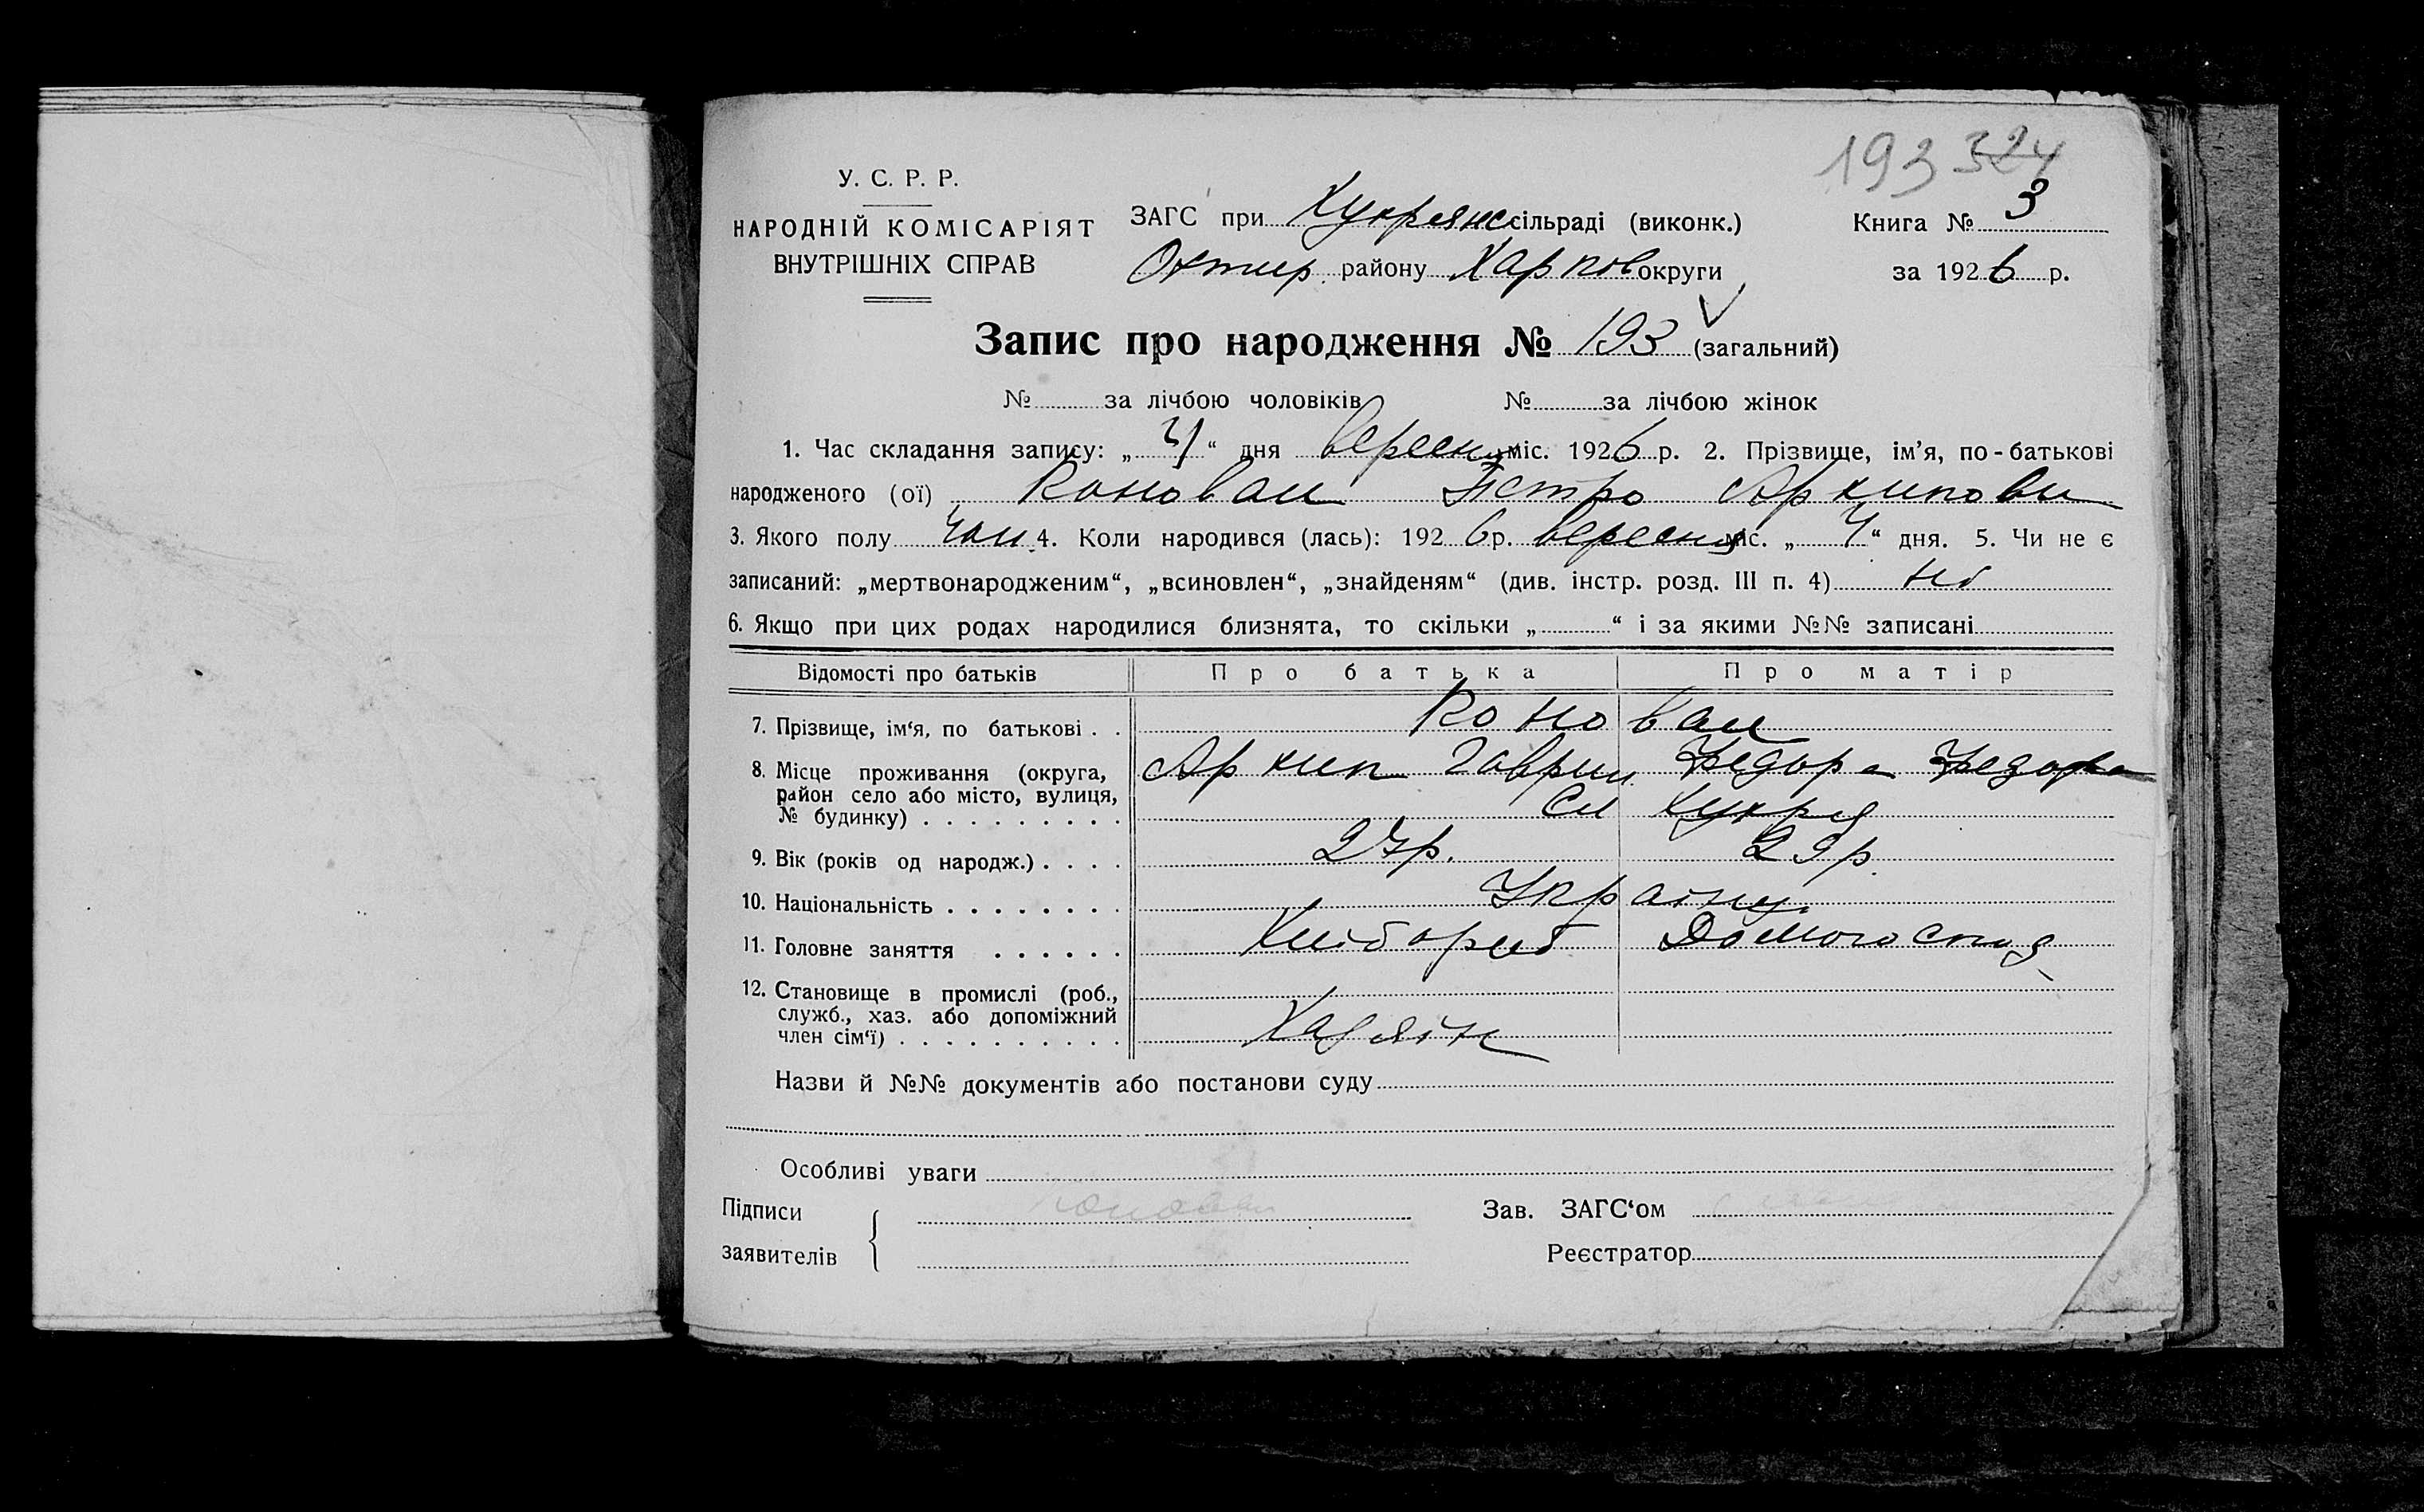 193 324
У. С. Р. Р.
НАРОДНІЙ КОМІСАРІЯТ
ВНУТРІШНІХ СПРАВ
ЗАГС при Хухрянс. сільраді (виконк.)
Охтир. району Харков округи
Книга № 3
за 1926 р.
Запис про народження № 193 (загальний)
№ за лічбою чоловіків № за лічбою жінок
1. Час складання запису: „ “ дня вересня міс. 1926 р. 2. Прізвище, ім’я, по-батькові
народженого (ої) Коновал Петро Архипови
3. Якого полу чол. 4. Коли народився (лась): 1926 р. вересня міс. „ 4 “ дня. 5. Чи не є
записаний: „мертвонародженим“, „всиновлен“, „знайденям“ (див. інстр. розд. III п. 4) ні
6. Якщо при цих родах народилися близнята, то скільки „ “ і за якими №№ записані
Відомості про батьків Про батька Про матір
7. Прізвище, ім‘я, по батькові . . Коновал
8. Місце проживання (округа, Архип Гаврил. Федора Федоров
район село або місто, вулиця,
№ будинку) . . . . . . . . . Сл Хухря
9. Вік (років од народж.) . . . . 27р. 29р.
10. Національність . . . . . . . . Українц.
11. Головне заняття . . . . . . Хлібороб Домогоспод
12. Становище в промислі (роб.,
служб., хаз. або допоміжний
член сім‘ї) . . . . . . . . . . Хазяїн
Назви й №№ документів або постанови суду
Особливі уваги
Підписи
заявителів
Коновал
Зав. ЗАГС‘ом
Реєстратор